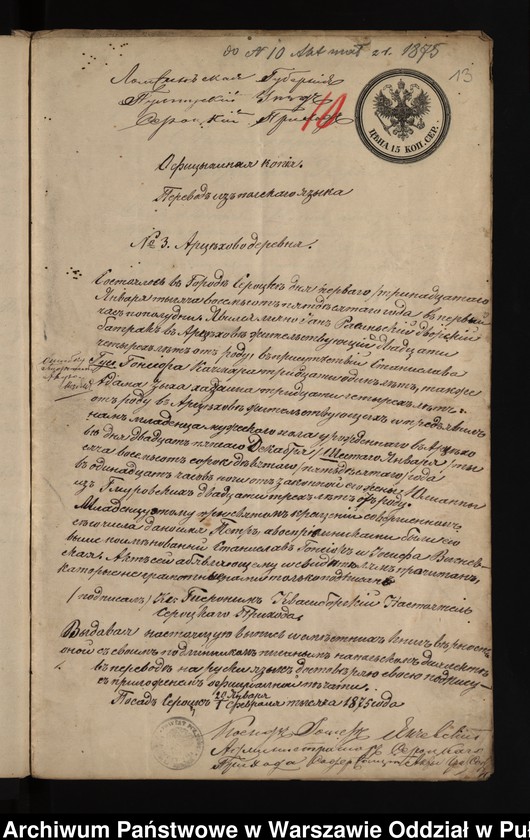 до N 10 Akt mał 21. 1875
13
Ломжинская Губернія
Пултускій Уѣздъ
Сероцкій Приходъ
10
ЦѢНА 15 КОП. СЕР.
Официальная копія.
Переводъ изъ польскаго языка
№ 3. Арцѣхово деревня.
Состоялось въ Городѣ Сероцкѣ дня перваго /тринадцатаго
Января тысяча восемьсотъ пятьдесятаго года въ первый
часъ пополудни. Явился лично Янъ дворскій
батракъ въ Арцѣховѣ жительствующій двадцати
четырехъ лѣтъ отъ роду въ присутствіи Станислава
Гонсіора тридцати одинъ лѣтъ, также
Адама хазяина тридцати четырехъ лѣтъ
отъ роду въ Арцѣховѣ жительствующихъ и предъявилъ
намъ младенца мужескаго пола урожденнаго въ Арцѣхо
вѣ дня двадцать пятаго Декабря / шестаго Января / ты
сяча восемьсотъ сорокъ девятаго / пятьдесятаго / года
въ одинадцать часовъ ночи отъ законной его жены Маріанны
изъ двадцати трехъ лѣтъ отъ роду.
Младенцу тому при святомъ крещеніи совершенномъ
сего числа дано имя Петръ, а воспріемниками были его
выше поименованный Станиславъ Гонсіоръ и Іозефа Виснев-
ская. Актъ сей объявляющему и свидѣтелямъ прочитанъ,
которые неграмотны нами только подписанъ
/подписалъ/ Кс: Гиеронимъ Настоятель
Сероцкаго Прихода.
Выдавая настоящую выпись изъ мѣстныхъ книгъ вѣрность
оной съ своимъ подлинникомъ писаннымъ на польскомъ діалектѣ
въ переводѣ на рускій языкъ достовѣряю своею подписью
съ приложеніемъ официальной печати.
Посадъ Сероцкъ 20 Января / 1 Февраля тысяча 1875 года
Ксендзъ
Администраторъ Сероцкаго
Прихода
Archiwum Państwowe w Warszawie Oddział w Puł